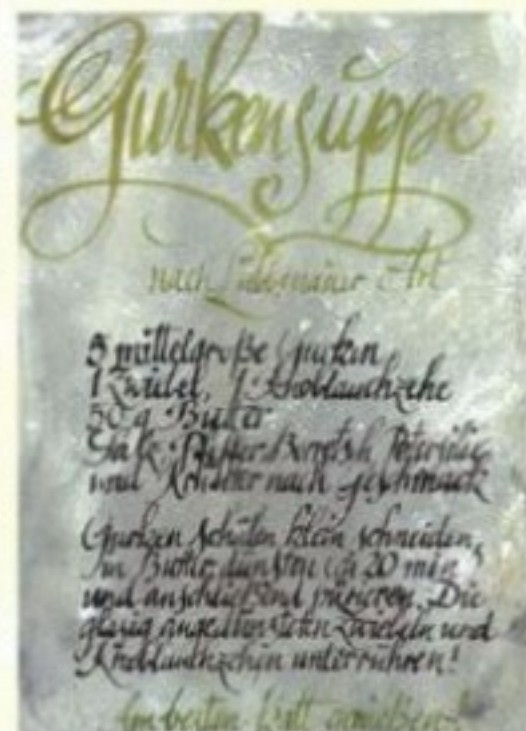 Gurkensuppe
nach Lübbenauer Art
5 mittelgroße Gurken
1 Zwiebel, 1 Knoblauchzehe
50 g Butter
Salz, Pfeffer, Borretsch, Petersilie
und Kräuter nach geschmack
Gurken schälen klein schneiden,
in Butter dünsten ca 20 min
und anschließend pürieren. Die
glasig angedünsteten Zwiebeln und
Knoblauchzehen unterrühren!
Am besten kalt genießen!